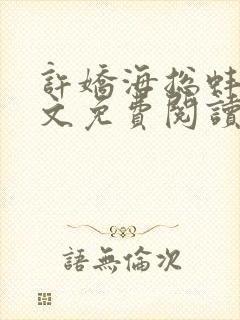 許嬌海總蚌
文免費閱讀
語無倫次